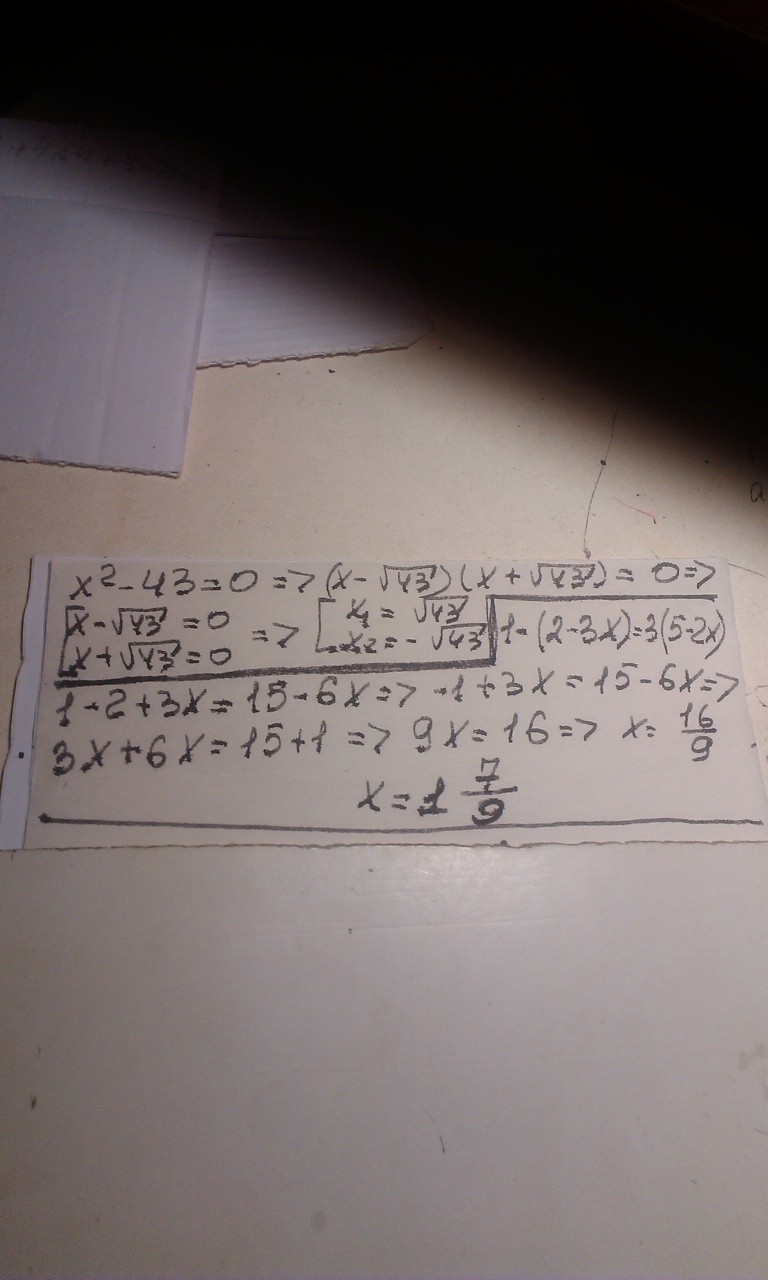 x²-43=0 => (x-√43)(x+√43)=0 =>
[x-√43=0
x+√43=0 => [x₁=√43
x₂=-√43
1-(2-3x)=3(5-2x)
1-2+3x=15-6x => -1+3x=15-6x =>
3x+6x=15+1 => 9x=16 => x=16/9
x=1 7/9